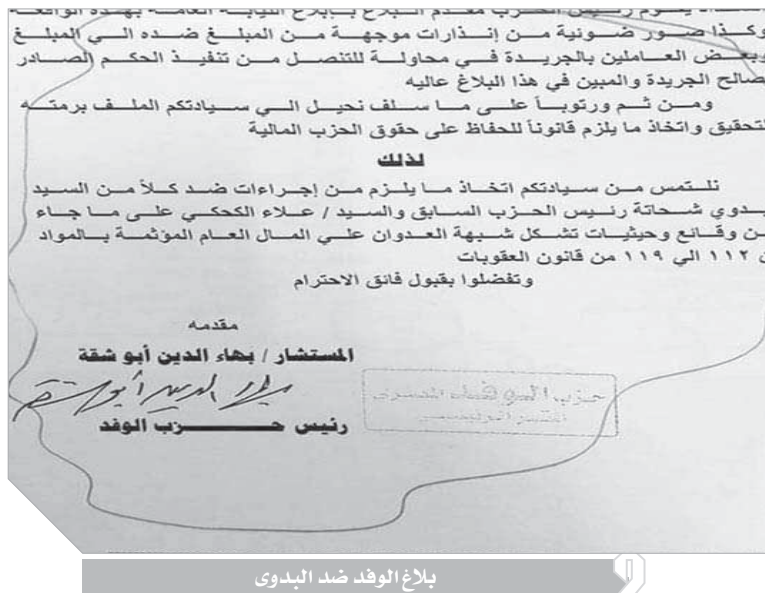 يقوم رئيس الحزب مقدم البلاغ بإبلاغ النيابة العامة بهذه الواقعة
وكذا صور ضوئية من إنذارات موجهة من المبلغ ضده الي المبلغ
وبعض العاملين بالجريدة في محاولة للتنصل من تنفيذ الحكم الصادر
لصالح الجريدة والمبين في هذا البلاغ عاليه
ومن ثم ورتوباً على ما سلف نحيل الي سيادتكم الملف برمته
للتحقيق واتخاذ ما يلزم قانوناً للحفاظ على حقوق الحزب المالية
لذلك
نلتمس من سيادتكم اتخاذ ما يلزم من إجراءات ضد كلاً من السيد
البدوي شحاتة رئيس الحزب السابق والسيد / علاء الكحكي على ما جاء
من وقائع وحيثيات تشكل شبهة العدوان علي المال العام المؤثمة بالمواد
من ١١٢ الي ١١٩ من قانون العقوبات
وتفضلوا بقبول فائق الاحترام
مقدمه
المستشار / بهاء الدين أبو شقة
بهاء الدين أبو شقة
رئيس حزب الوفد
حزب الوفد المصرى
المقر الرئيسى
بلاغ الوفد ضد البدوى